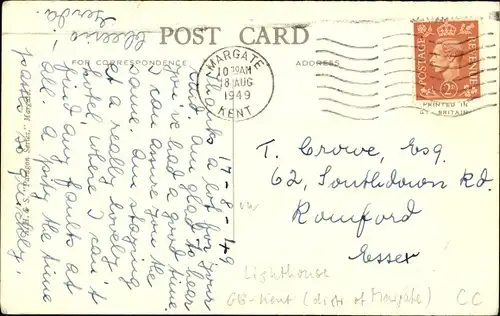 POST CARD
FOR CORRESPONDENCE
ADDRESS
MARGATE
10 30AM
18 AUG
1949
KENT
POSTAGE
REVENUE
2D
PRINTED IN
GT. BRITAIN.
17-8-49
Thanks a lot for your
card am glad to hear
you've had a good time
I can assure you the
same. Am staying
at a really lovely
hotel where I can't
find any faults at
all. a pity the time
passes so quickly.
Cheerio!
Gerda.
T. Crowe, Esq.
62, Southdown Rd
Romford
Essex
Lighthouse
GB-Kent (distr of Margate)
CC